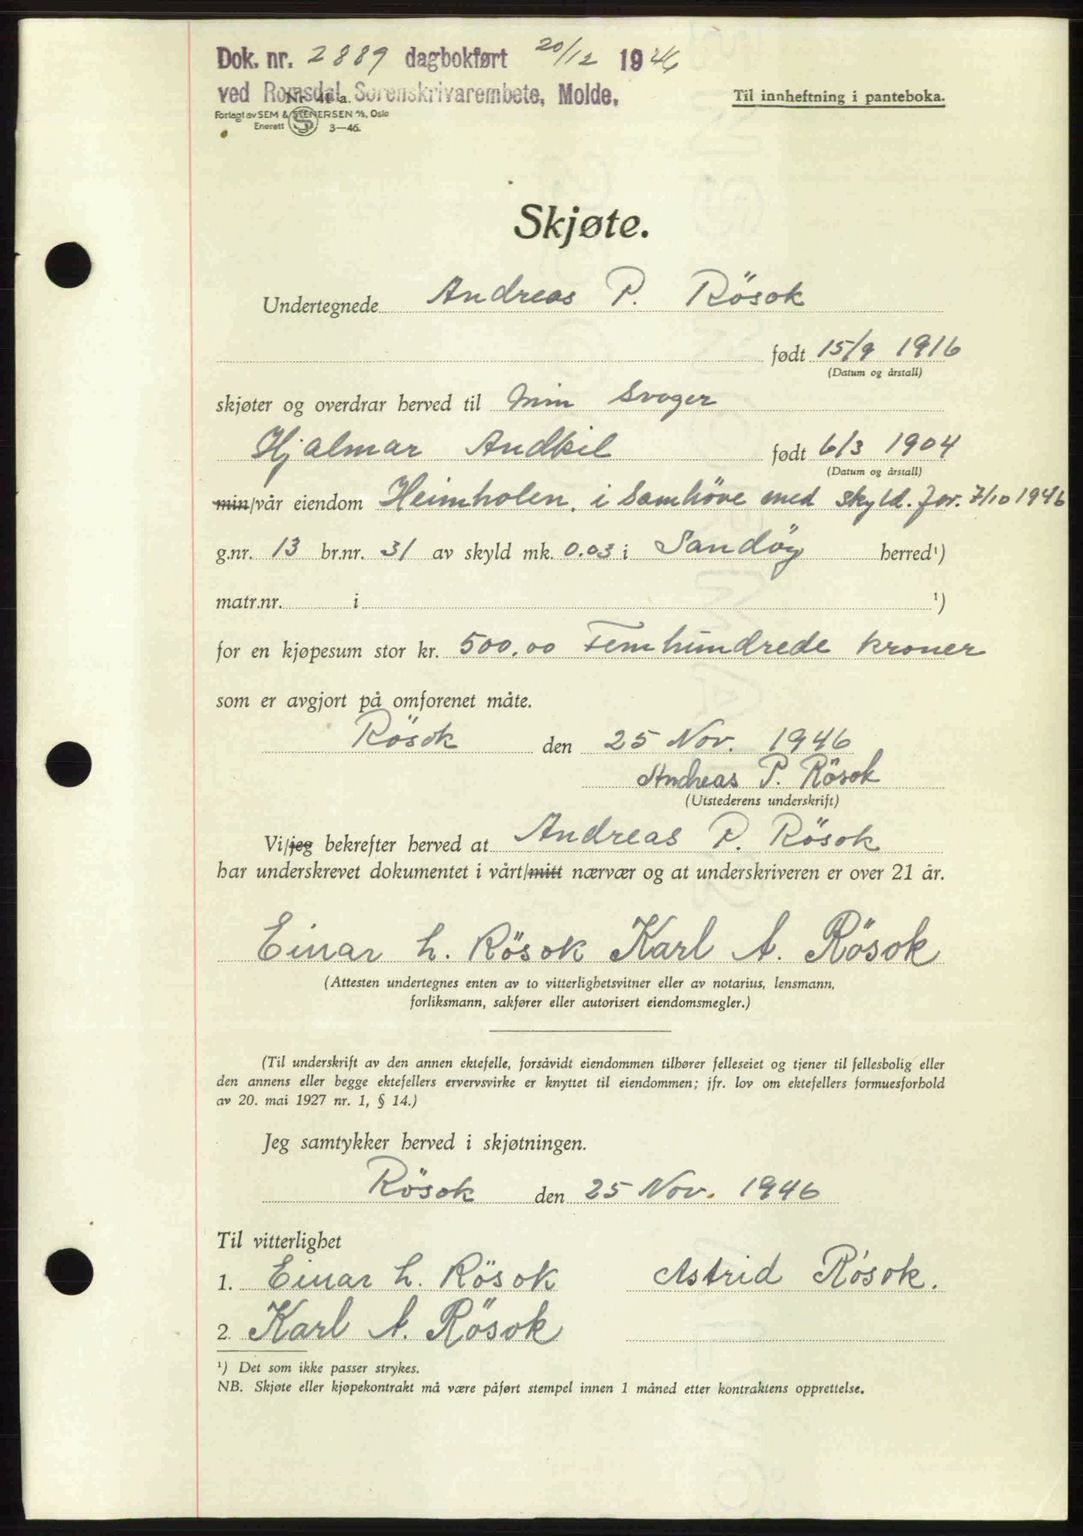 Dok. nr. 2889 dagbokført 20/12 1946
ved Romsdal Sorenskrivarembete, Molde.
Nr. 41 a.
Forlagt av SEM & STENERSEN A/S, Oslo
Enerett S 3—46.
Til innheftning i panteboka.
Skjøte.
Undertegnede Andreas P. Rösok
født 15/9 1916
(Datum og årstall)
skjøter og overdrar herved til min Svoger
Hjalmar Andkil født 6/3 1904
(Datum og årstall)
min/vår eiendom Heimholen, i Samhöve med skyld. for. 7/10 1946
g.nr. 13 br.nr. 31 av skyld mk. 0.03 i Sandöy herred¹)
matr.nr. i ¹)
for en kjøpesum stor kr. 500.00 Femhundrede kroner
som er avgjort på omforenet måte.
Rösok den 25 Nov. 1946
Andreas P. Rösok
(Utstederens underskrift)
Vi/jeg bekrefter herved at Andreas P. Rösok
har underskrevet dokumentet i vårt/mitt nærvær og at underskriveren er over 21 år.
Einar L. Rösok Karl A. Rösok
(Attesten undertegnes enten av to vitterlighetsvitner eller av notarius, lensmann,
forliksmann, sakfører eller autorisert eiendomsmegler.)
(Til underskrift av den annen ektefelle, forsåvidt eiendommen tilhører felleseiet og tjener til fellesbolig eller
den annens eller begge ektefellers ervervsvirke er knyttet til eiendommen; jfr. lov om ektefellers formuesforhold
av 20. mai 1927 nr. 1, § 14.)
Jeg samtykker herved i skjøtningen.
Rösok den 25 Nov. 1946
Til vitterlighet
1. Einar L. Rösok Astrid Rösok.
2. Karl A. Rösok
¹) Det som ikke passer strykes.
NB. Skjøte eller kjøpekontrakt må være påført stempel innen 1 måned etter kontraktens opprettelse.